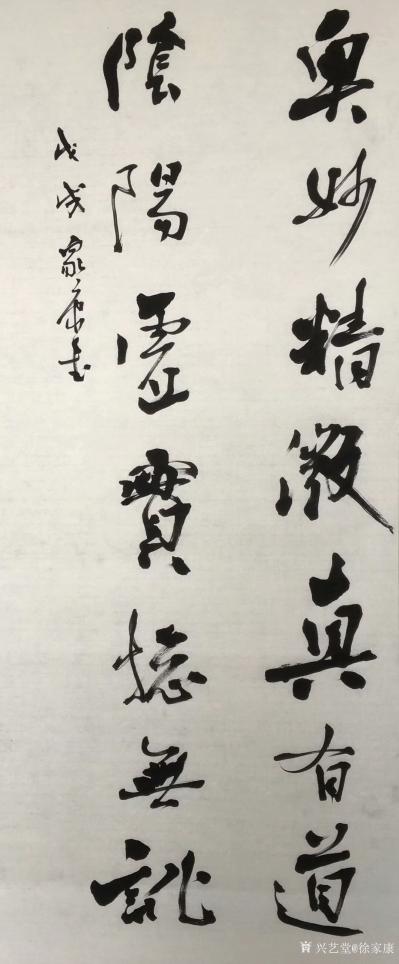 奥妙精微真有道
陰陽虛實總無訛
戊戌家康書
兴艺堂@徐家康